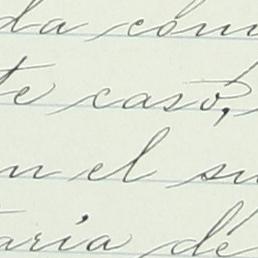 da com
te caso,
n el su
taria de